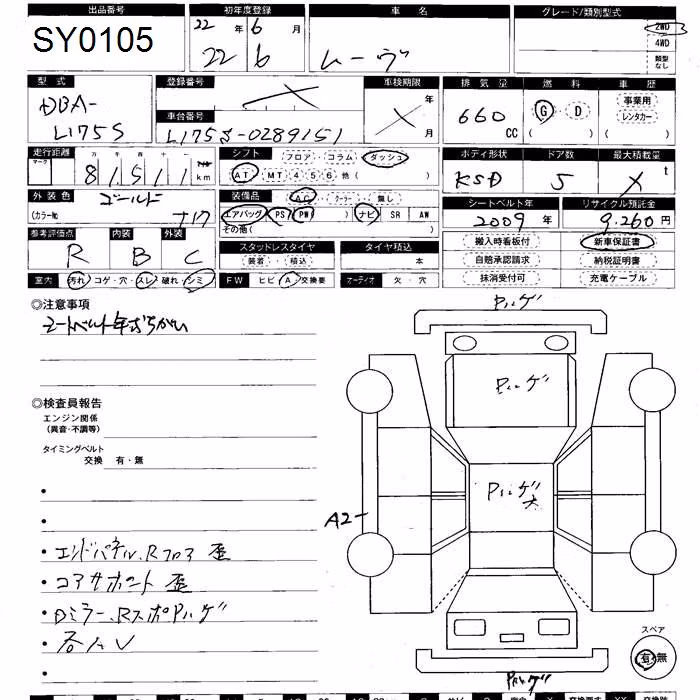 出品番号 初年度登録 車名 グレード/類別型式
SY0105 22年 6月 2WD
22 6 ムーヴ 4WD
類型なし
型式 登録番号 車検期限 排気量 燃料 車歴
DBA- 年 660 G・D 事業用
L175S 車台番号 月 CC ( ) レンタカー
L175S-0289151 ( )
走行距離 シフト フロア・コラム・ダッシュ ボディ形状 ドア数 最大積載量
マーク 万 千 百 十 一
81511 km AT・MT 4 5 6 他( ) 5 t
外装色 ゴールド 装備品 AC・クーラー・無し シートベルト年 リサイクル預託金
(カラーNo ナロ7) エアバッグ( ) PS PW ナビ SR AW 2009年 9,260円
その他( )
参考評価点 内装 外装 スタッドレスタイヤ タイヤ積込 搬入時看板付 新車保証書
R B C 装着・積込 本 自賠承認請求 納税証明書
室内 汚れ・コゲ・穴・スレ・破れ・シミ FW ヒビ・A・交換要 オーディオ 欠・穴 抹消受付可 充電ケーブル
◎注意事項
シートベルト年式ちがい
◎検査員報告
エンジン関係
(異音・不調等)
タイミングベルト
交換 有・無
•
•
• エンドパネル、Rフロア 歪
• コアサポート 歪
• Dミラー、RスポPハゲ
• 各AU
•
Pハゲ
Pハゲ
Pハゲ大
A2
Pハゲ
スペア
有・無